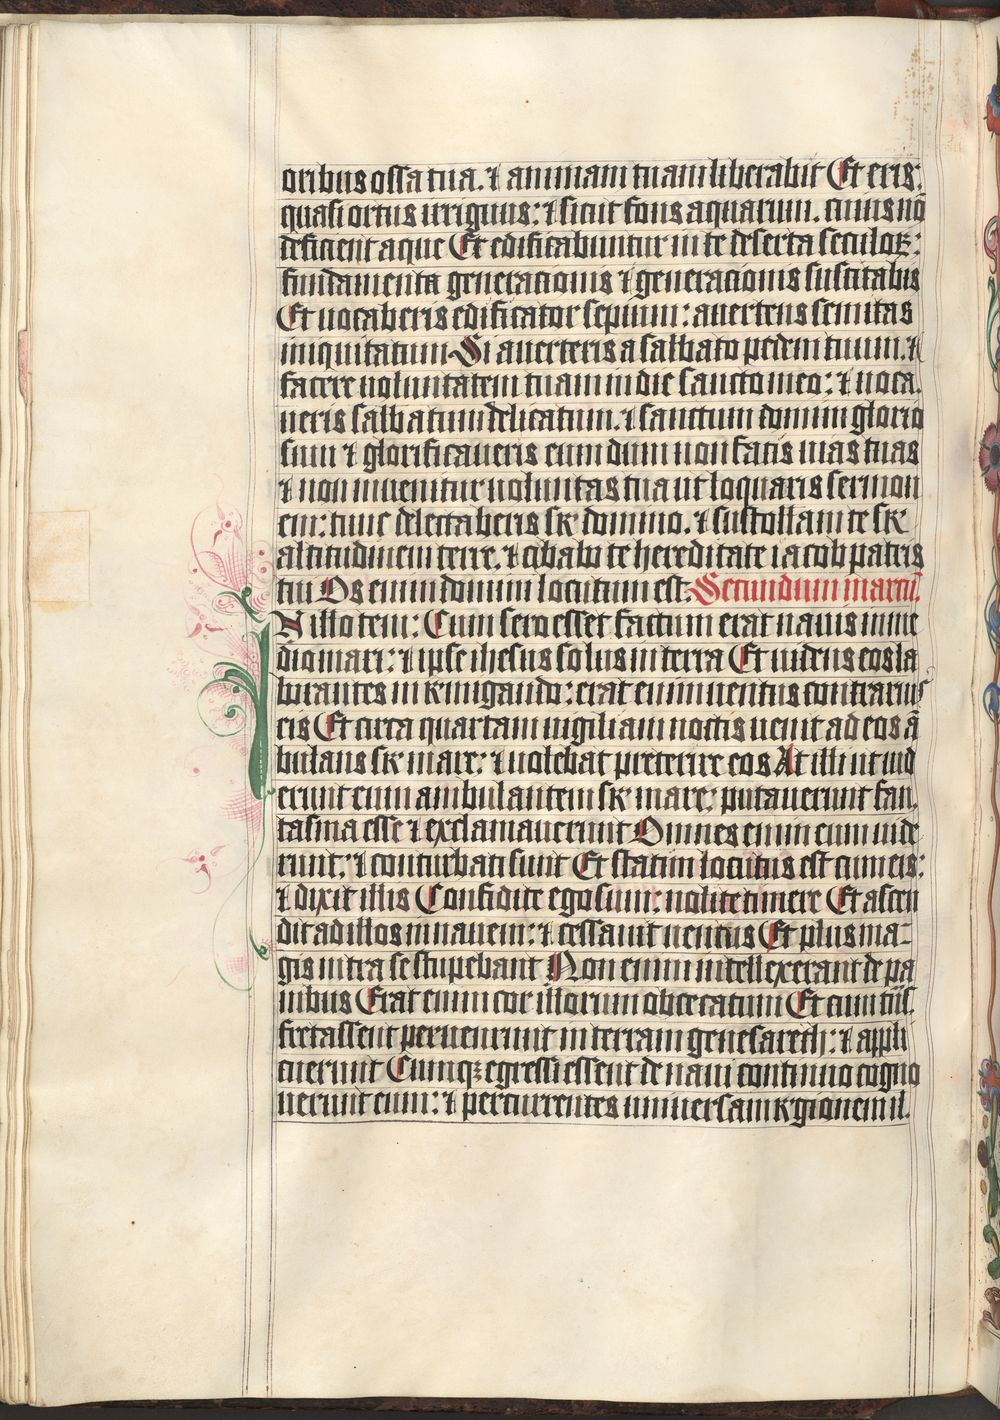 oribus ossa tua. ⁊ animam tuam liberabit Et eris:
quasi ortus irriguus: ⁊ sicut fons aquarum. cuius nō
deficient aque Et edificabuntur in te deserta seculoꝝ:
fundamenta generacionis ⁊ generacionis suscitabis
Et uocaberis edificator sepium: auertens semitas
iniquitatum Si auerteris a sabbato pedem tuum. ⁊
facere uoluntatem tuam in die sancto meo: ⁊ uoca
ueris sabbatum delicatum. ⁊ sanctum domini glorio
sum ⁊ glorificaueris eum dum non facis uias tuas
⁊ non inuenitur uoluntas tua ut loquaris sermon
em: tunc delectaberis sr̄ domino. ⁊ sustollam te sr̄
altitudinem terre. ⁊ cibabo te hereditate iacob patris
tui Os enim domini locutum est. Secundum marcū.
IN illo tem: Cum sero esset factum erat nauis in me
dio mari: ⁊ ipse ihesus solus in terra Et uidens eos la
borantes in remigando: erat enim uentus contrarius
eis Et circa quartam uigiliam noctis uenit ad eos ā
bulans sr̄ mare: ⁊ uolebat preterire eos At illi ut uid
erunt eum ambulantem sr̄ mare: putauerunt fan
tasma esse ⁊ exclamauerunt Omnes enim eum uide
runt: ⁊ conturbati sunt Et statim locutus est cum eis:
⁊ dixit illis Confidite ego sum: nolite timere Et ascen
dit ad illos in nauem: ⁊ cessauit uentus Et plus ma-
gis intra se stupebant Non enim intellexerant de pa
nibus Erat enim cor illorum obcecatum Et cum tns
fretassent peruenerunt in terram genesareth: ⁊ appli
cuerunt Cumqꝫ egressi essent de naui continuo cogno
uerunt eum: ⁊ percurrentes uniuersam regionem il.